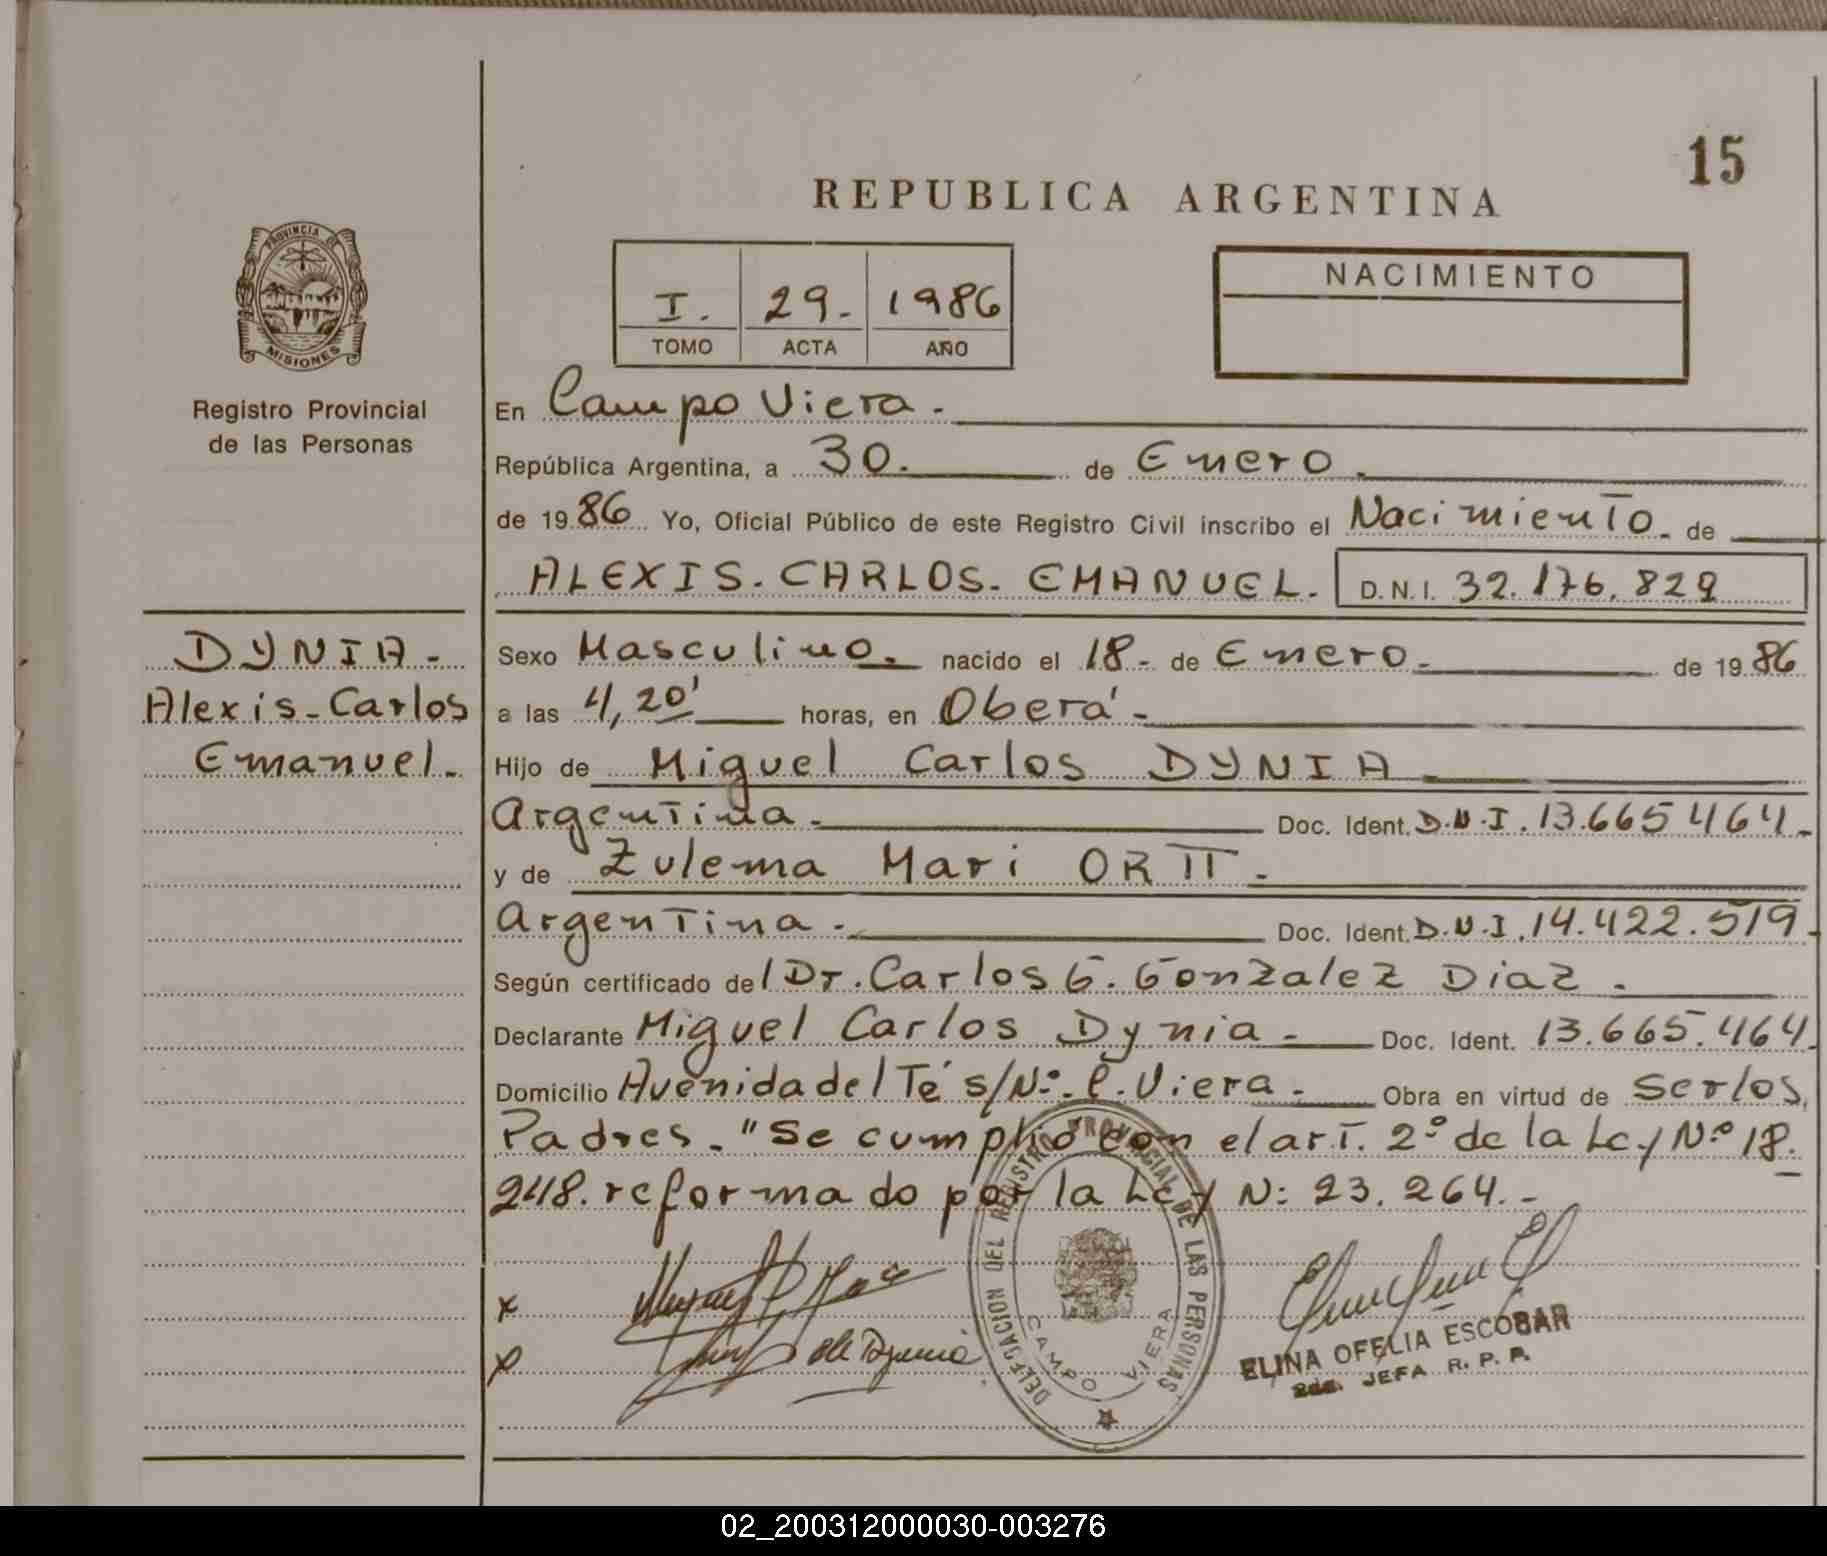 15
REPUBLICA ARGENTINA
PROVINCIA DE
MISIONES
Registro Provincial
de las Personas
I. 29. 1986
TOMO ACTA AÑO
NACIMIENTO
En Campo Viera.
República Argentina, a 30. de Enero.
de 1986 Yo, Oficial Público de este Registro Civil inscribo el Nacimiento de
ALEXIS. CARLOS. EMANUEL. D.N.I. 32.176.829
DYNIA-
Alexis-Carlos
Emanuel.
Sexo Masculino. nacido el 18- de Enero. de 1986
a las 4,20' horas, en Oberá-
Hijo de Miguel Carlos DYNIA
Argentina. Doc. Ident. D.N.I. 13.665464.
y de Zulema Mari ORTT.
Argentina. Doc. Ident. D.N.I. 14.422.519.
Según certificado del Dr. Carlos G. Gonzalez Diaz.
Declarante Miguel Carlos Dynia- Doc. Ident. 13.665.464.
Domicilio Avenida del Té s/Nº. C. Viera. Obra en virtud de Ser los
Padres. "Se cumplió con el art. 2º de la Ley Nº 18.
248. reformado por la Ley N: 23.264.-
x
de Dynia
DELEGACION DEL REGISTRO PROVINCIAL DE LAS PERSONAS
CAMPO VIERA
ELINA OFELIA ESCOBAR
2da. JEFA R. P. P.
02_200312000030-003276